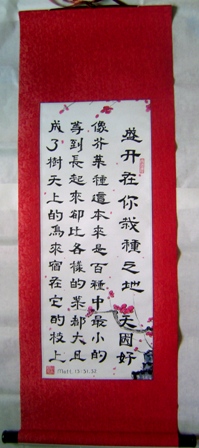 盛开在你栽種之地 天國好
像芥菜種這本來是百種中最小的
等到長起來卻比各樣的菜都大且
成了樹天上的鳥來宿在它的枝上
Matt. 13:31,32